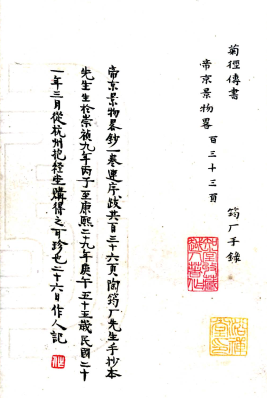 菊徑傳書
帝京景物畧 百三十三頁
筠厂手錄
帝京景物畧鈔一卷連序跋共百三十六頁陶筠厂先生手抄本
先生生於崇禎九年丙子至康熙二十九年庚午五十五歲民國二十
一年三月從杭州抱經堂購得之可珍也二十六日作人記